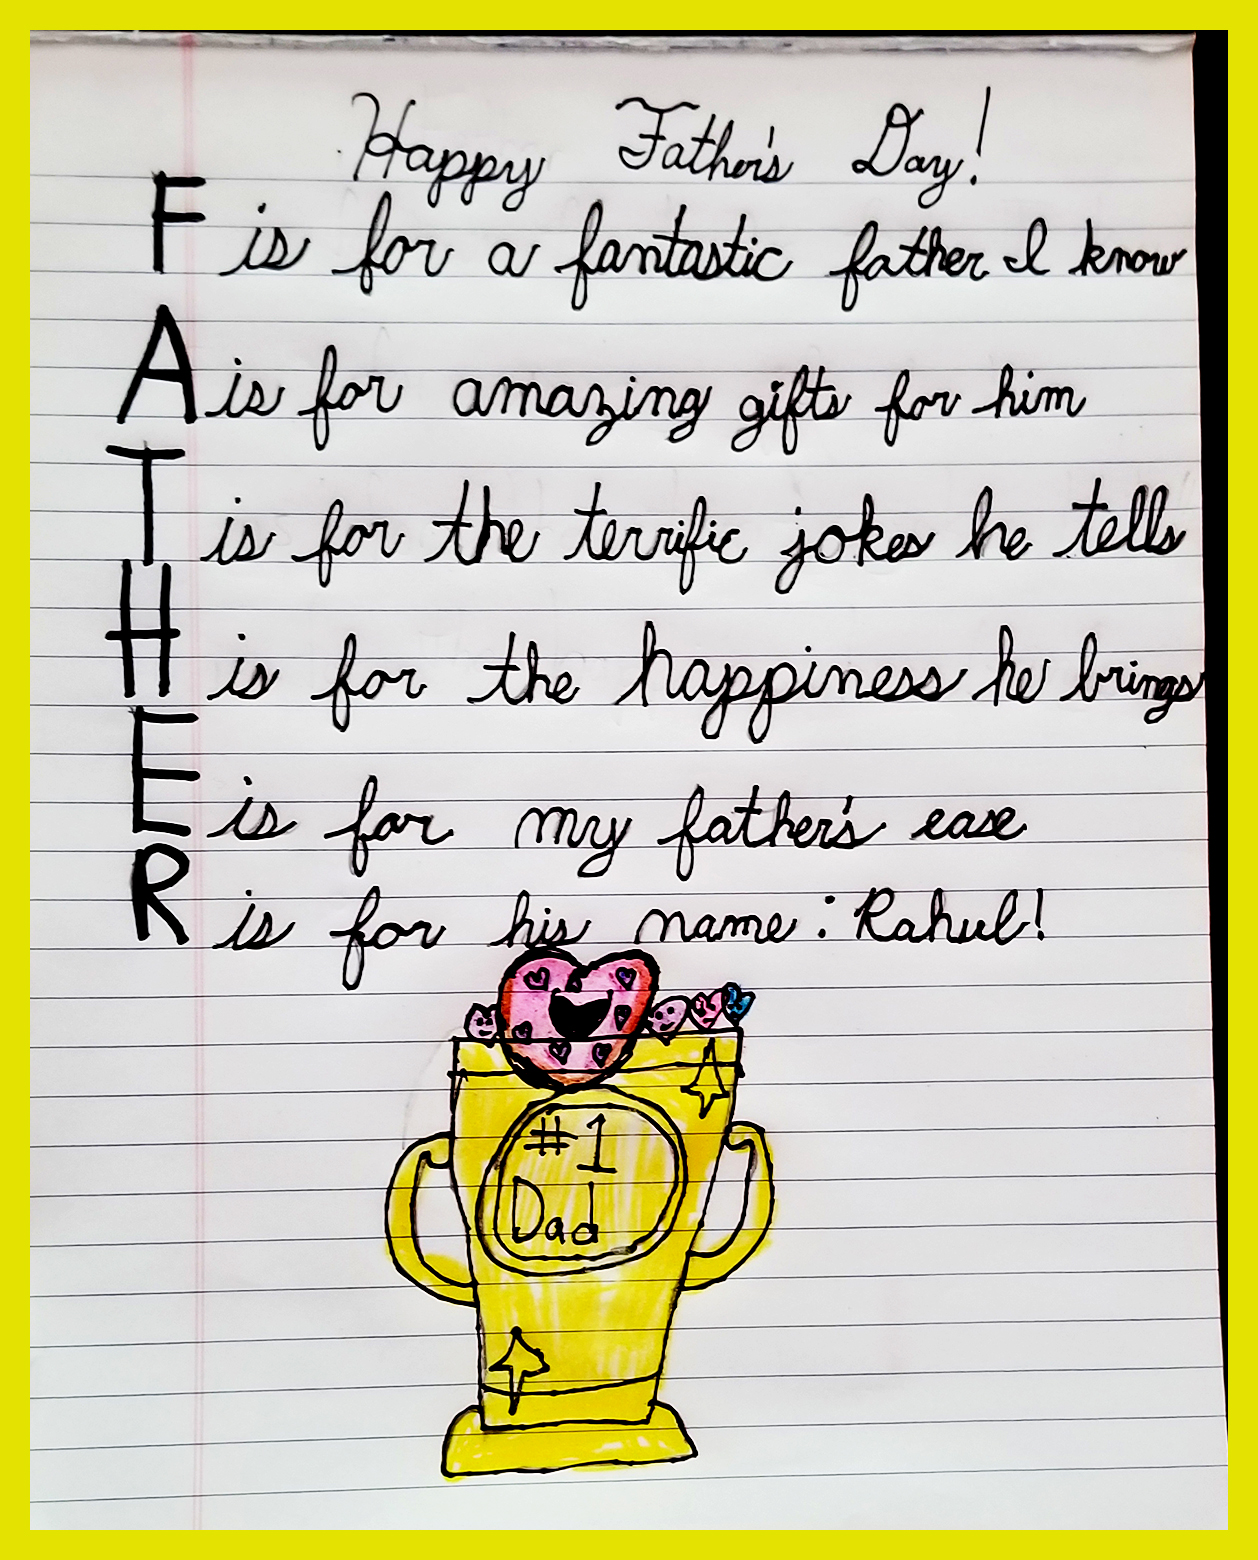 Happy Father's Day!
F is for a fantastic father I know
A is for amazing gifts for him
T is for the terrific jokes he tells
H is for the happiness he brings
E is for my father's ease
R is for his name: Rahul!
#1
Dad